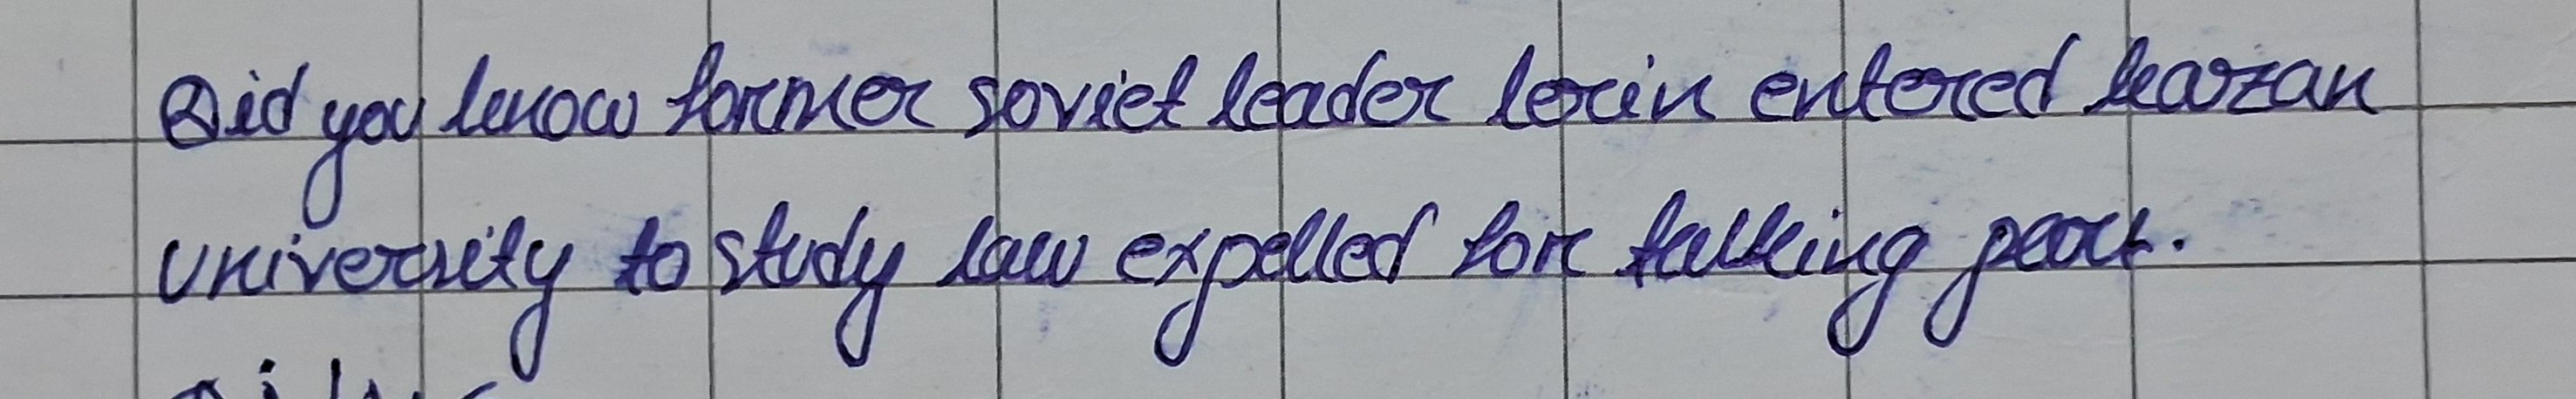 Did you know former soviet leader lenin entered kazan
university to study law expelled for talking part.